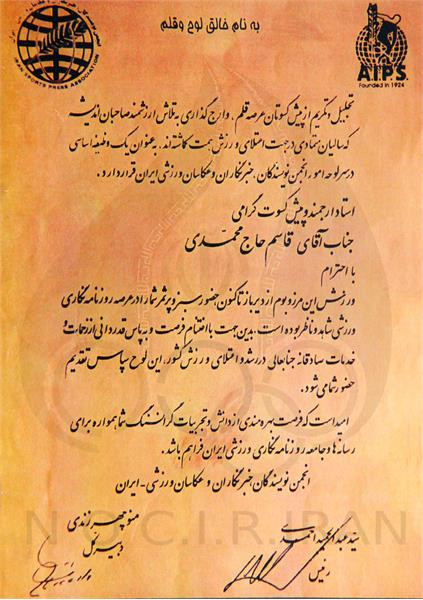 به نام خالق لوح وقلم
IRAN SPORTS PRESS ASSOCIATION
A.I.P.S.
Founded in 1924
تجلیل و تکریم از پیش کسوتان عرصه قلم، و ارج گذاری به تلاش ارزشمند صاحبان اندیشه
که سالیان متمادی در جهت اعتلای ورزش همت گماشته اند، به عنوان یک وظیفه اساسی
در سرلوحه امور انجمن نویسندگان، خبرنگاران و عکاسان ورزشی ایران قرار دارد.
استاد ارجمند و پیش کسوت گرامی
جناب آقای قاسم حاج محمدی
با احترام
ورزش این مرز و بوم از دیرباز تاکنون حضور سبز و پرثمر شما را در عرصه روزنامه نگاری
ورزشی شاهد و ناظر بوده است. بدین جهت با اغتنام فرصت و به پاس قدردانی از زحمات و
خدمات صادقانه جنابعالی در رشد و اعتلای ورزش کشور، این لوح سپاس تقدیم
حضور شما می شود.
امید است که فرصت بهره مندی از دانش و تجربیات گرانسنگ شما همواره برای
رسانه ها و جامعه روزنامه نگاری ورزشی ایران فراهم باشد.
انجمن نویسندگان خبرنگاران و عکاسان ورزشی - ایران
منوچهر زندی
دبیر کل
سید عبدالحمید احمدی
رئیس
N.O.C.I.R.IRAN